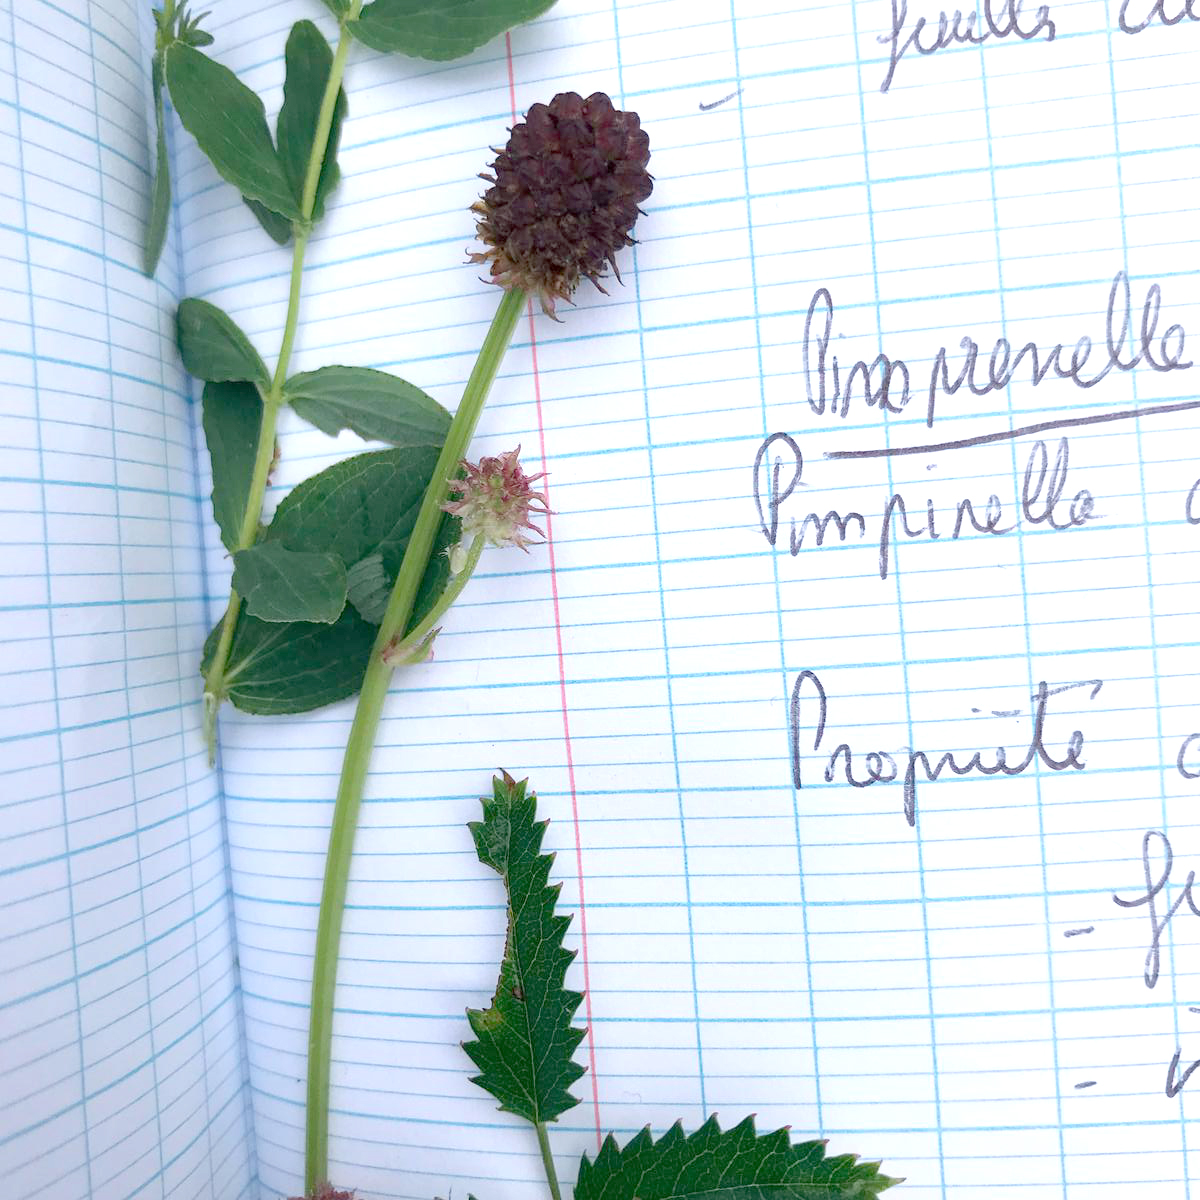 feuilles
Pimprenelle
Pimpinella
Propriété
-
-